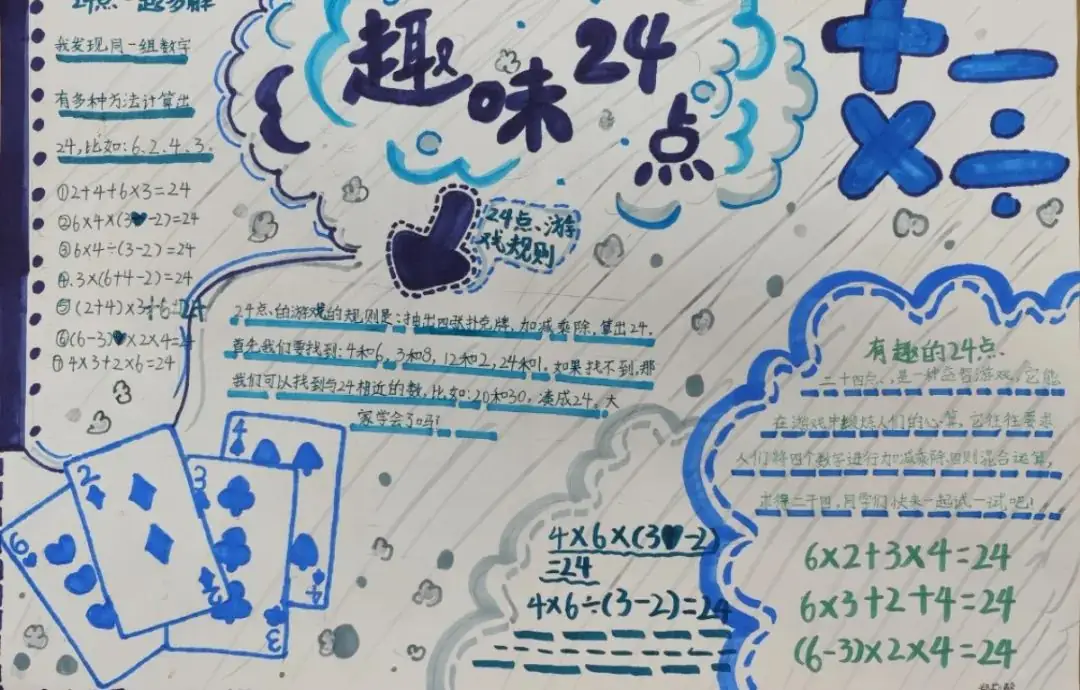 24点一题多解
我发现同一组数字
有多种方法计算出
24,比如:6、2、4、3.
①2+4+6×3=24
②6×4×(3-2)=24
③6×4÷(3-2)=24
④.3×(6+4-2)=24
⑤(2+4)×3+6=24
⑥(6-3)×2×4=24
⑦4×3+2×6=24
趣味24点
+ −
× ÷
24点、游
戏规则
24点、的游戏的规则是:抽出四张扑克牌,加减乘除、算出24.
首先我们要找到:4和6,3和8,12和2,24和1,如果找不到,那
我们可以找到与24相近的数,比如:20和30,凑成24。大
家学会了吗?
有趣的24点
二十四点、,是一种益智游戏,它能
在游戏中锻炼人们的心算,它往往要求
人们将四个数字进行加减乘除四则混合运算,
求得二十四,同学们快来一起试一试吧!
6×2+3×4=24
6×3+2+4=24
(6-3)×2×4=24
4×6×(3-2)
=24
4×6÷(3-2)=24
6
2
2
3
3
4
4